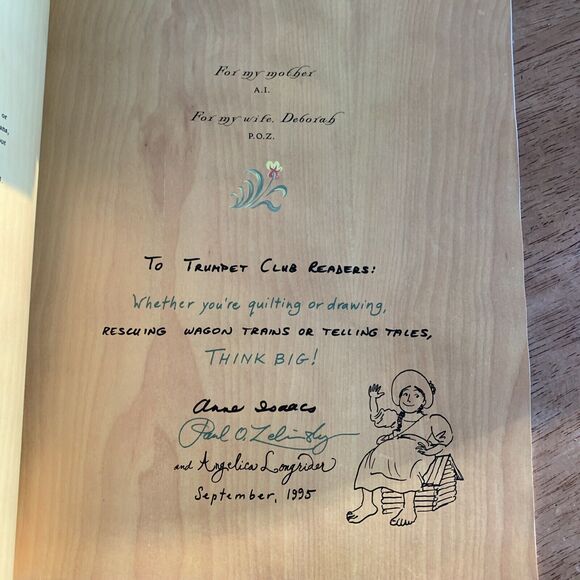 or
For my mother
A.I.
For my wife, Deborah
P.O.Z.
To Trumpet Club Readers:
Whether you're quilting or drawing,
RESCUING WAGON TRAINS OR TELLING TALES,
THINK BIG!
Anne Isaacs
Paul O. Zelinsky
and Angelica Longrider
September, 1995